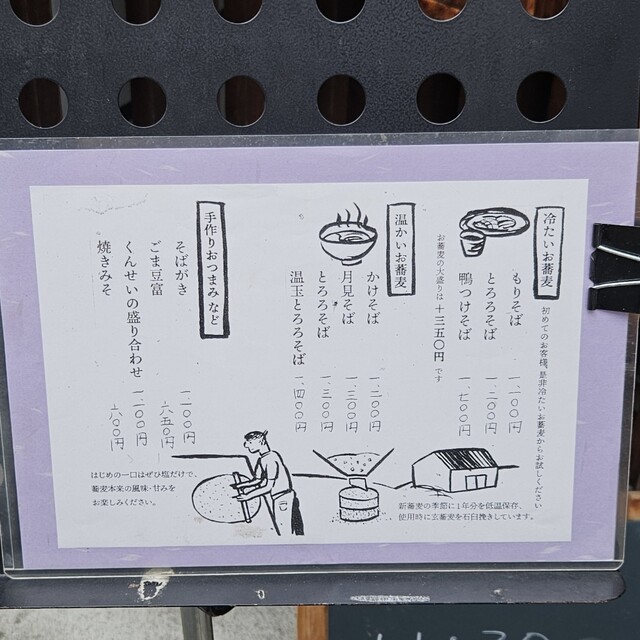 冷たいお蕎麦
初めてのお客様、是非冷たいお蕎麦からお試しください
もりそば 一、一〇〇円
とろろそば 一、三〇〇円
鴨つけそば 一、七〇〇円
お蕎麦の大盛りは+三五〇円です
温かいお蕎麦
かけそば 一、二〇〇円
月見そば 一、三〇〇円
とろろそば 一、三〇〇円
温玉とろろそば 一、四〇〇円
手作りおつまみなど
そばがき
ごま豆富 六五〇円
くんせいの盛り合わせ
焼きみそ 六〇〇円
はじめの一口はぜひ塩だけで、
蕎麦本来の風味・甘みを
お楽しみください。
新蕎麦の季節に1年分を低温保存、
使用時に玄蕎麦を石臼挽きしています。